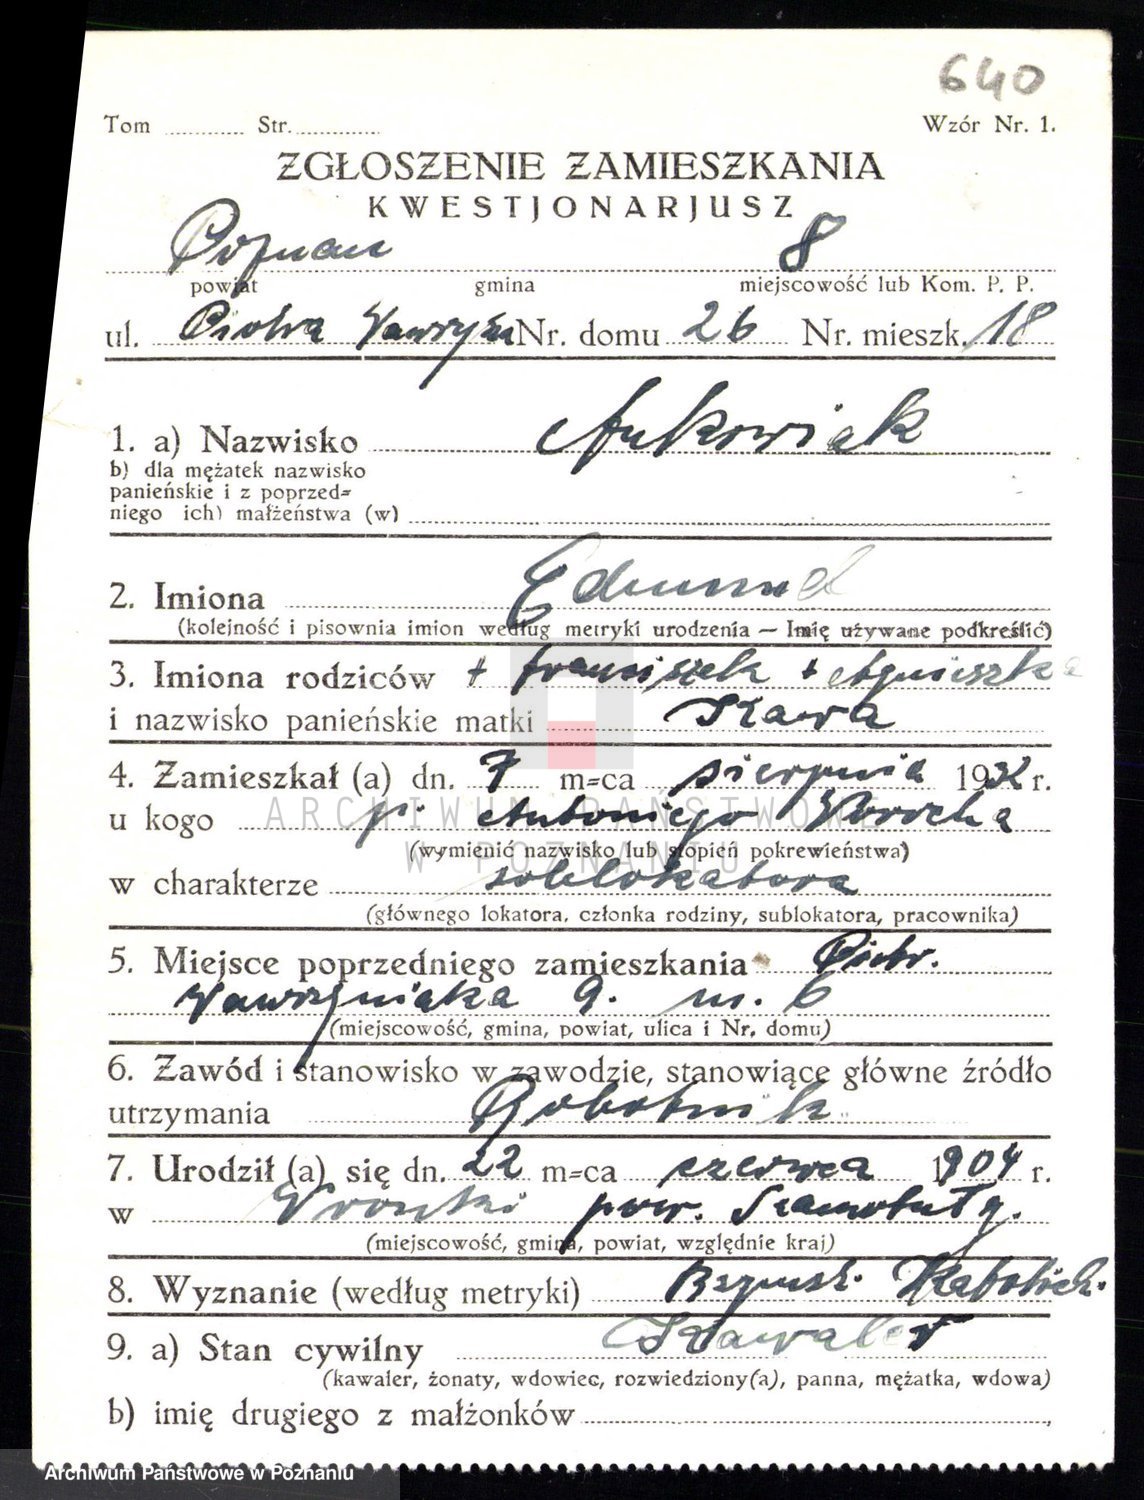 640
Tom Str. Wzór Nr. 1.
ZGŁOSZENIE ZAMIESZKANIA
KWESTJONARJUSZ
Poznań 8
powiat gmina miejscowość lub Kom. P. P.
ul. Piotra Wawrzyn Nr. domu 26 Nr. mieszk. 18
1. a) Nazwisko
b) dla mężatek nazwisko
panieńskie i z poprzed=
niego ich) małżeństwa (w)
2. Imiona Edmund
(kolejność i pisownia imion według metryki urodzenia — Imię używane podkreślić)
3. Imiona rodziców + Franciszek + Agnieszka
i nazwisko panieńskie matki
4. Zamieszkał (a) dn. 7 m=ca sierpnia 1932 r.
u kogo p. Antoniego
(wymienić nazwisko lub stopień pokrewieństwa)
w charakterze sublokatora
(głównego lokatora, członka rodziny, sublokatora, pracownika)
5. Miejsce poprzedniego zamieszkania Piotr.
Wawrzyniaka 9. m. 6
(miejscowość, gmina, powiat, ulica i Nr. domu)
6. Zawód i stanowisko w zawodzie, stanowiące główne źródło
utrzymania Robotnik
7. Urodził (a) się dn. 22 m=ca czerwca 1904 r.
w Wronki pow. Szamotuły.
(miejscowość, gmina, powiat, względnie kraj)
8. Wyznanie (według metryki) Rzymsk. Katolick.
9. a) Stan cywilny Kawaler
(kawaler, żonaty, wdowiec, rozwiedziony(a), panna, mężatka, wdowa)
b) imię drugiego z małżonków
ARCHIWUM PAŃSTWOWE
W POZNANIU
Archiwum Państwowe w Poznaniu